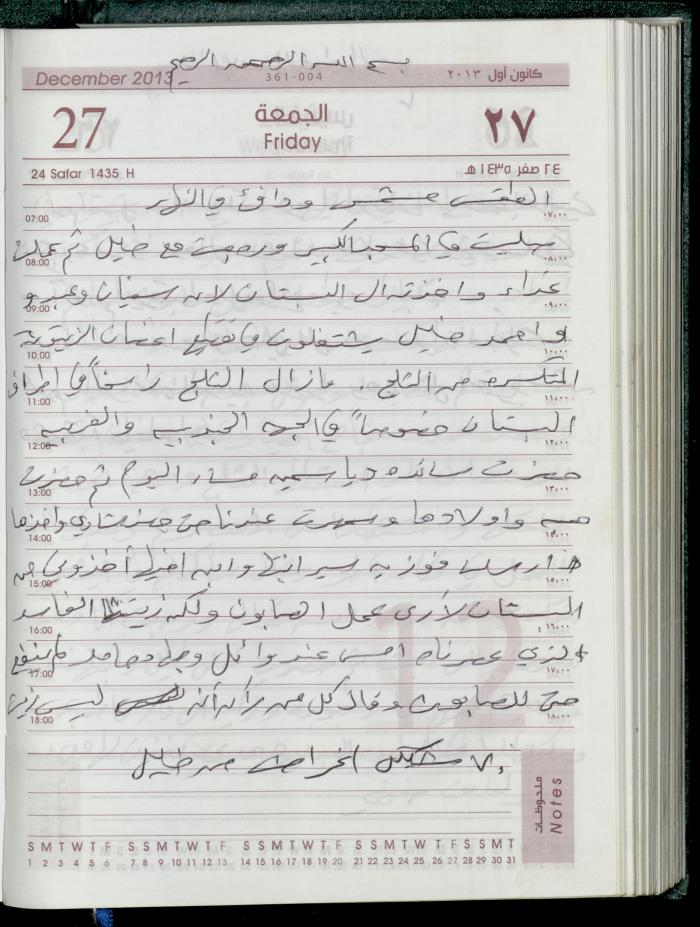 بسم الله الرحمن الرحيم
December 2013
361-004
كانون أول ٢٠١٣
27
الجمعة
Friday
٢٧
24 Safar 1435 H
٢٤ صفر ١٤٣٥ هـ
الطقس مشمس ودافئ في النهار
07:00 ٠٧:٠٠
صليت في المسجد الكبير ورجعت مع خليل ثم عملت
08:00 ٠٨:٠٠
غداء واخذته ال البستان لانه سفيان وعبدو
09:00 ٠٩:٠٠
واحمد خليل يشتغلون في تقطيع اغصان الزيتونة
10:00 ١٠:٠٠
المتكسره من الثلج. مازال الثلج راسخاً في اطراف
11:00 ١١:٠٠
البستان خصوصاً في الجهه الجنوبيه والغربيه
12:00 ١٢:٠٠
حضرت سانده وياسمين مساء اليوم ثم حضرت
13:00 ١٣:٠٠
واولادها وسهرت عندنا حتى حضر شادي واخذها
14:00 ١٤:٠٠
فوزيه وابنه أخذوني من
15:00 ١٥:٠٠
البستان لأرى عمل الصابون ولكن زيتنا الفاسد
16:00 ١٦:٠٠
الذي عصرناه امس عند وائل لم ينفع
17:00 ١٧:٠٠
حتى للصابون وقال كل من رآه أنه ليس زيت
18:00 ١٨:٠٠
٧٠ شيكل من خليل
ملاحظات
Notes
12
S M T W T F S S M T W T F S S M T W T F S S M T W T F S S M T
1 2 3 4 5 6 7 8 9 10 11 12 13 14 15 16 17 18 19 20 21 22 23 24 25 26 27 28 29 30 31